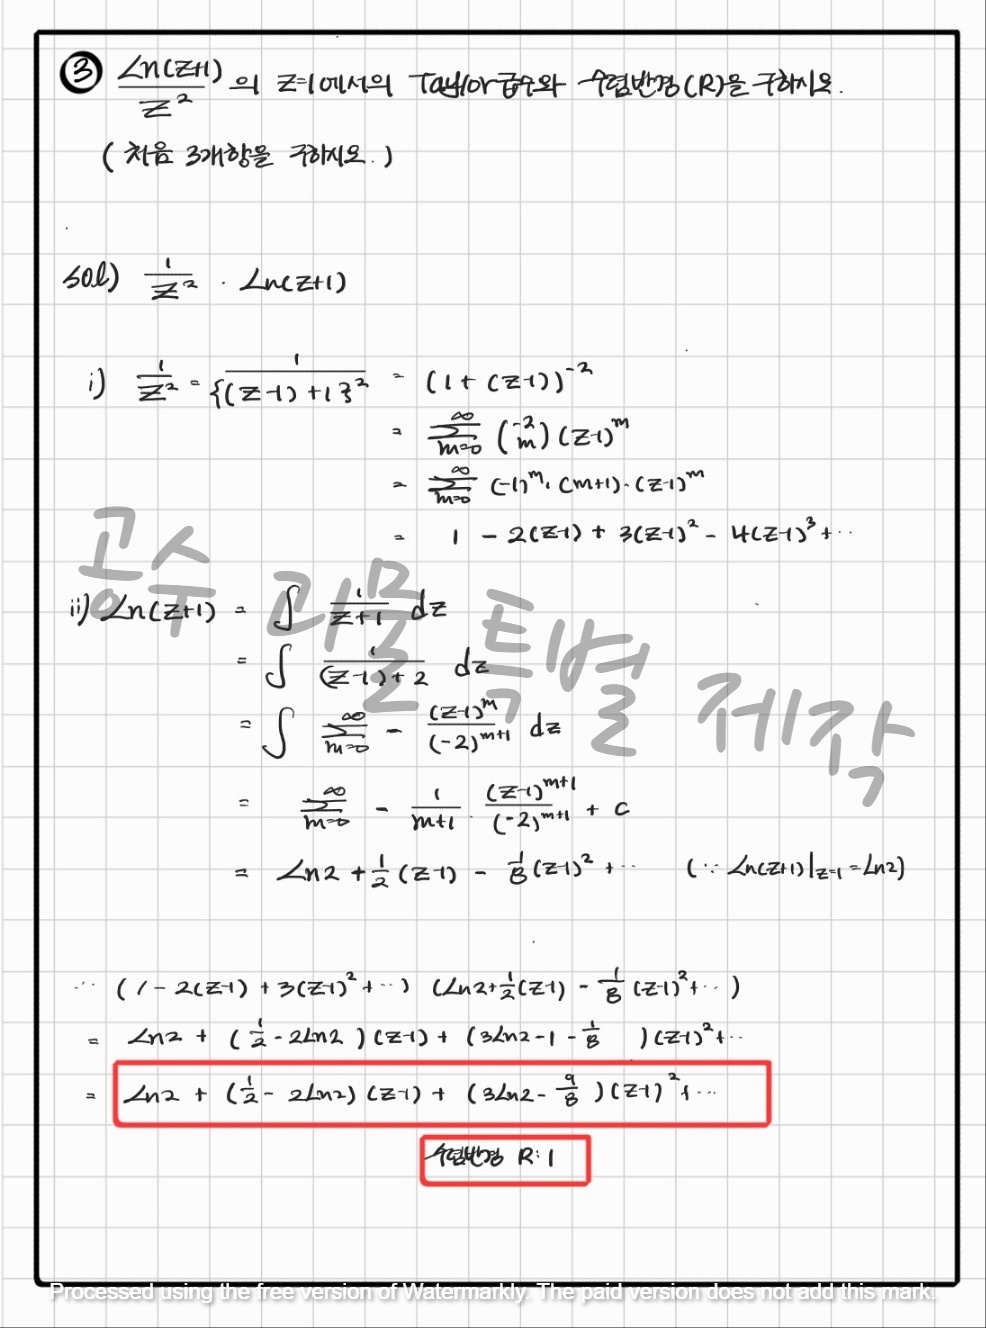 ③ Ln(z+1)/z² 의 z=1에서의 Taylor급수와 수렴반경(R)을 구하시오.
(처음 3개항을 구하시오.)
sol) 1/z² · Ln(z+1)
i) 1/z² = 1/{(z-1)+1}² = (1+(z-1))⁻²
= ∑_{m=0}^{∞} (-2 m) (z-1)^m
= ∑_{m=0}^{∞} (-1)^m · (m+1) · (z-1)^m
= 1 - 2(z-1) + 3(z-1)² - 4(z-1)³ + ··
공수 과물 특별 제작
ii) Ln(z+1) = ∫ 1/(z+1) dz
= ∫ 1/((z-1)+2) dz
= ∫ ∑_{m=0}^{∞} - (z-1)^m/(-2)^{m+1} dz
= ∑_{m=0}^{∞} - 1/(m+1) · (z-1)^{m+1}/(-2)^{m+1} + C
= Ln2 + 1/2 (z-1) - 1/8 (z-1)² + ··· (∵ Ln(z+1)|_{z=1} = Ln2)
··· (1 - 2(z-1) + 3(z-1)² + ···) (Ln2 + 1/2 (z-1) - 1/8 (z-1)² + ···)
= Ln2 + (1/2 - 2Ln2) (z-1) + (3Ln2 - 1 - 1/8 ) (z-1)² + ···
= Ln2 + (1/2 - 2Ln2) (z-1) + (3Ln2 - 9/8) (z-1)² + ···
수렴반경 R: 1
Processed using the free version of Watermarkly. The paid version does not add this mark.